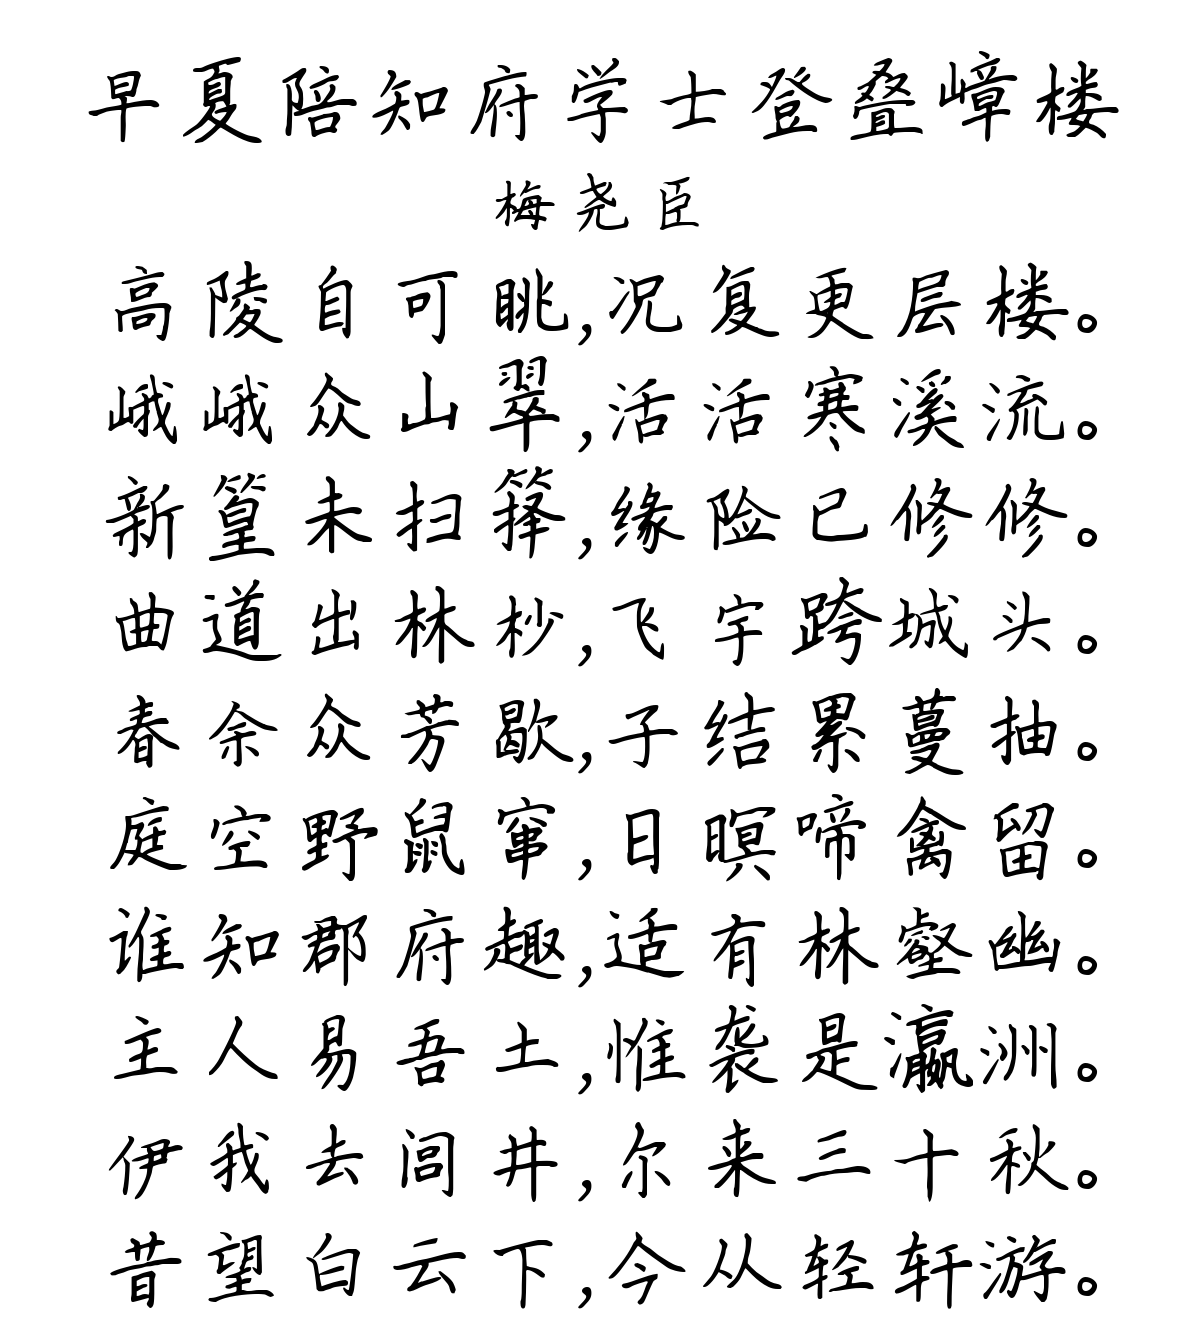 早夏陪知府学士登叠嶂楼
梅尧臣
高陵自可眺,况复更层楼。
峨峨众山翠,活活寒溪流。
新篁未扫箨,缘险已修修。
曲道出林杪,飞宇跨城头。
春余众芳歇,子结累蔓抽。
庭空野鼠窜,日暝啼禽留。
谁知郡府趣,适有林壑幽。
主人易吾土,惟袭是瀛洲。
伊我去闾井,尔来三十秋。
昔望白云下,今从轻轩游。